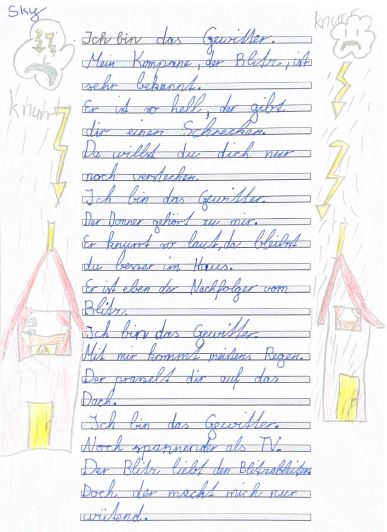 Sky
knurr
knurr
Ich bin das Gewitter.
Mein Kompane, der Blitz, ist
sehr bekannt.
Er ist so hell, der gibt
dir einen Schrecken.
Du willst du dich nur
noch verstecken.
Ich bin das Gewitter.
Der Donner gehört zu mir.
Er knurrt so laut, da bleibst
du besser im Haus.
Er ist eben der Nachfolger vom
Blitz.
Ich bin das Gewitter.
Mit mir kommt meistens Regen.
Der prasselt dir auf das
Dach.
Ich bin das Gewitter.
Noch spannender als TV.
Der Blitz liebt den Blitzableiter.
Doch der macht mich nur
wütend.